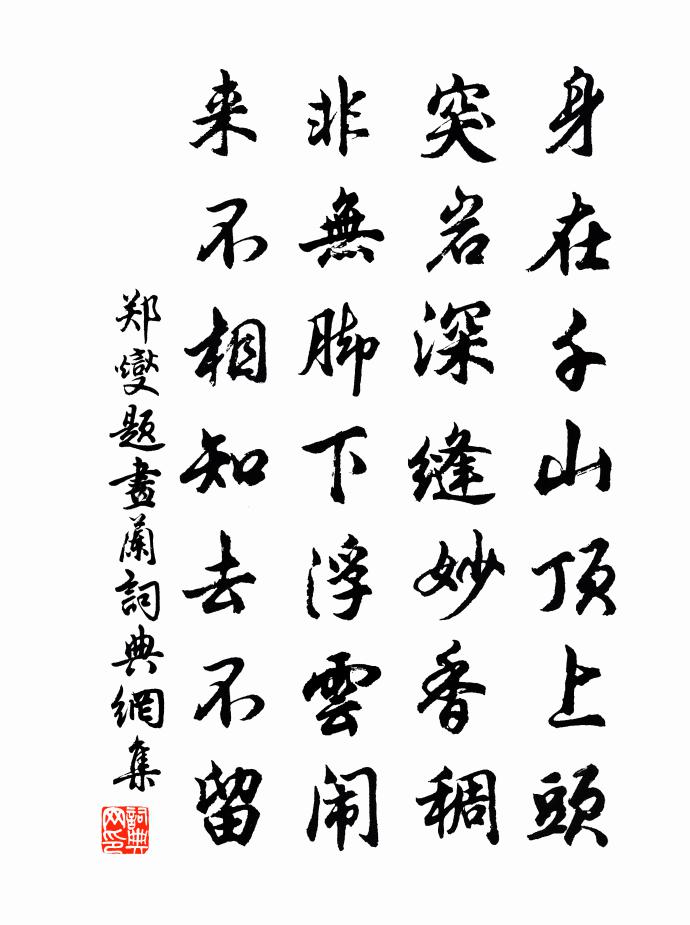 身在千山顶上頭
突岩深缝妙香稠
非無脚下浮雲闹
来不相知去不留
郑燮题畫蘭詞典網集
詞典网印